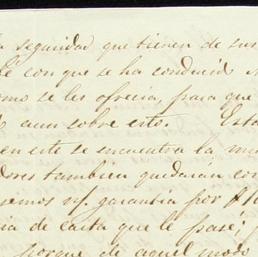 seguridad que tienen de sus
con que se ha conducido
se les ofrecia, para que
aun sobre esto. Esta
en este se encuentra la
tambien quedarian con
garantia por
de carta que le pasé;
porque de aquel modo